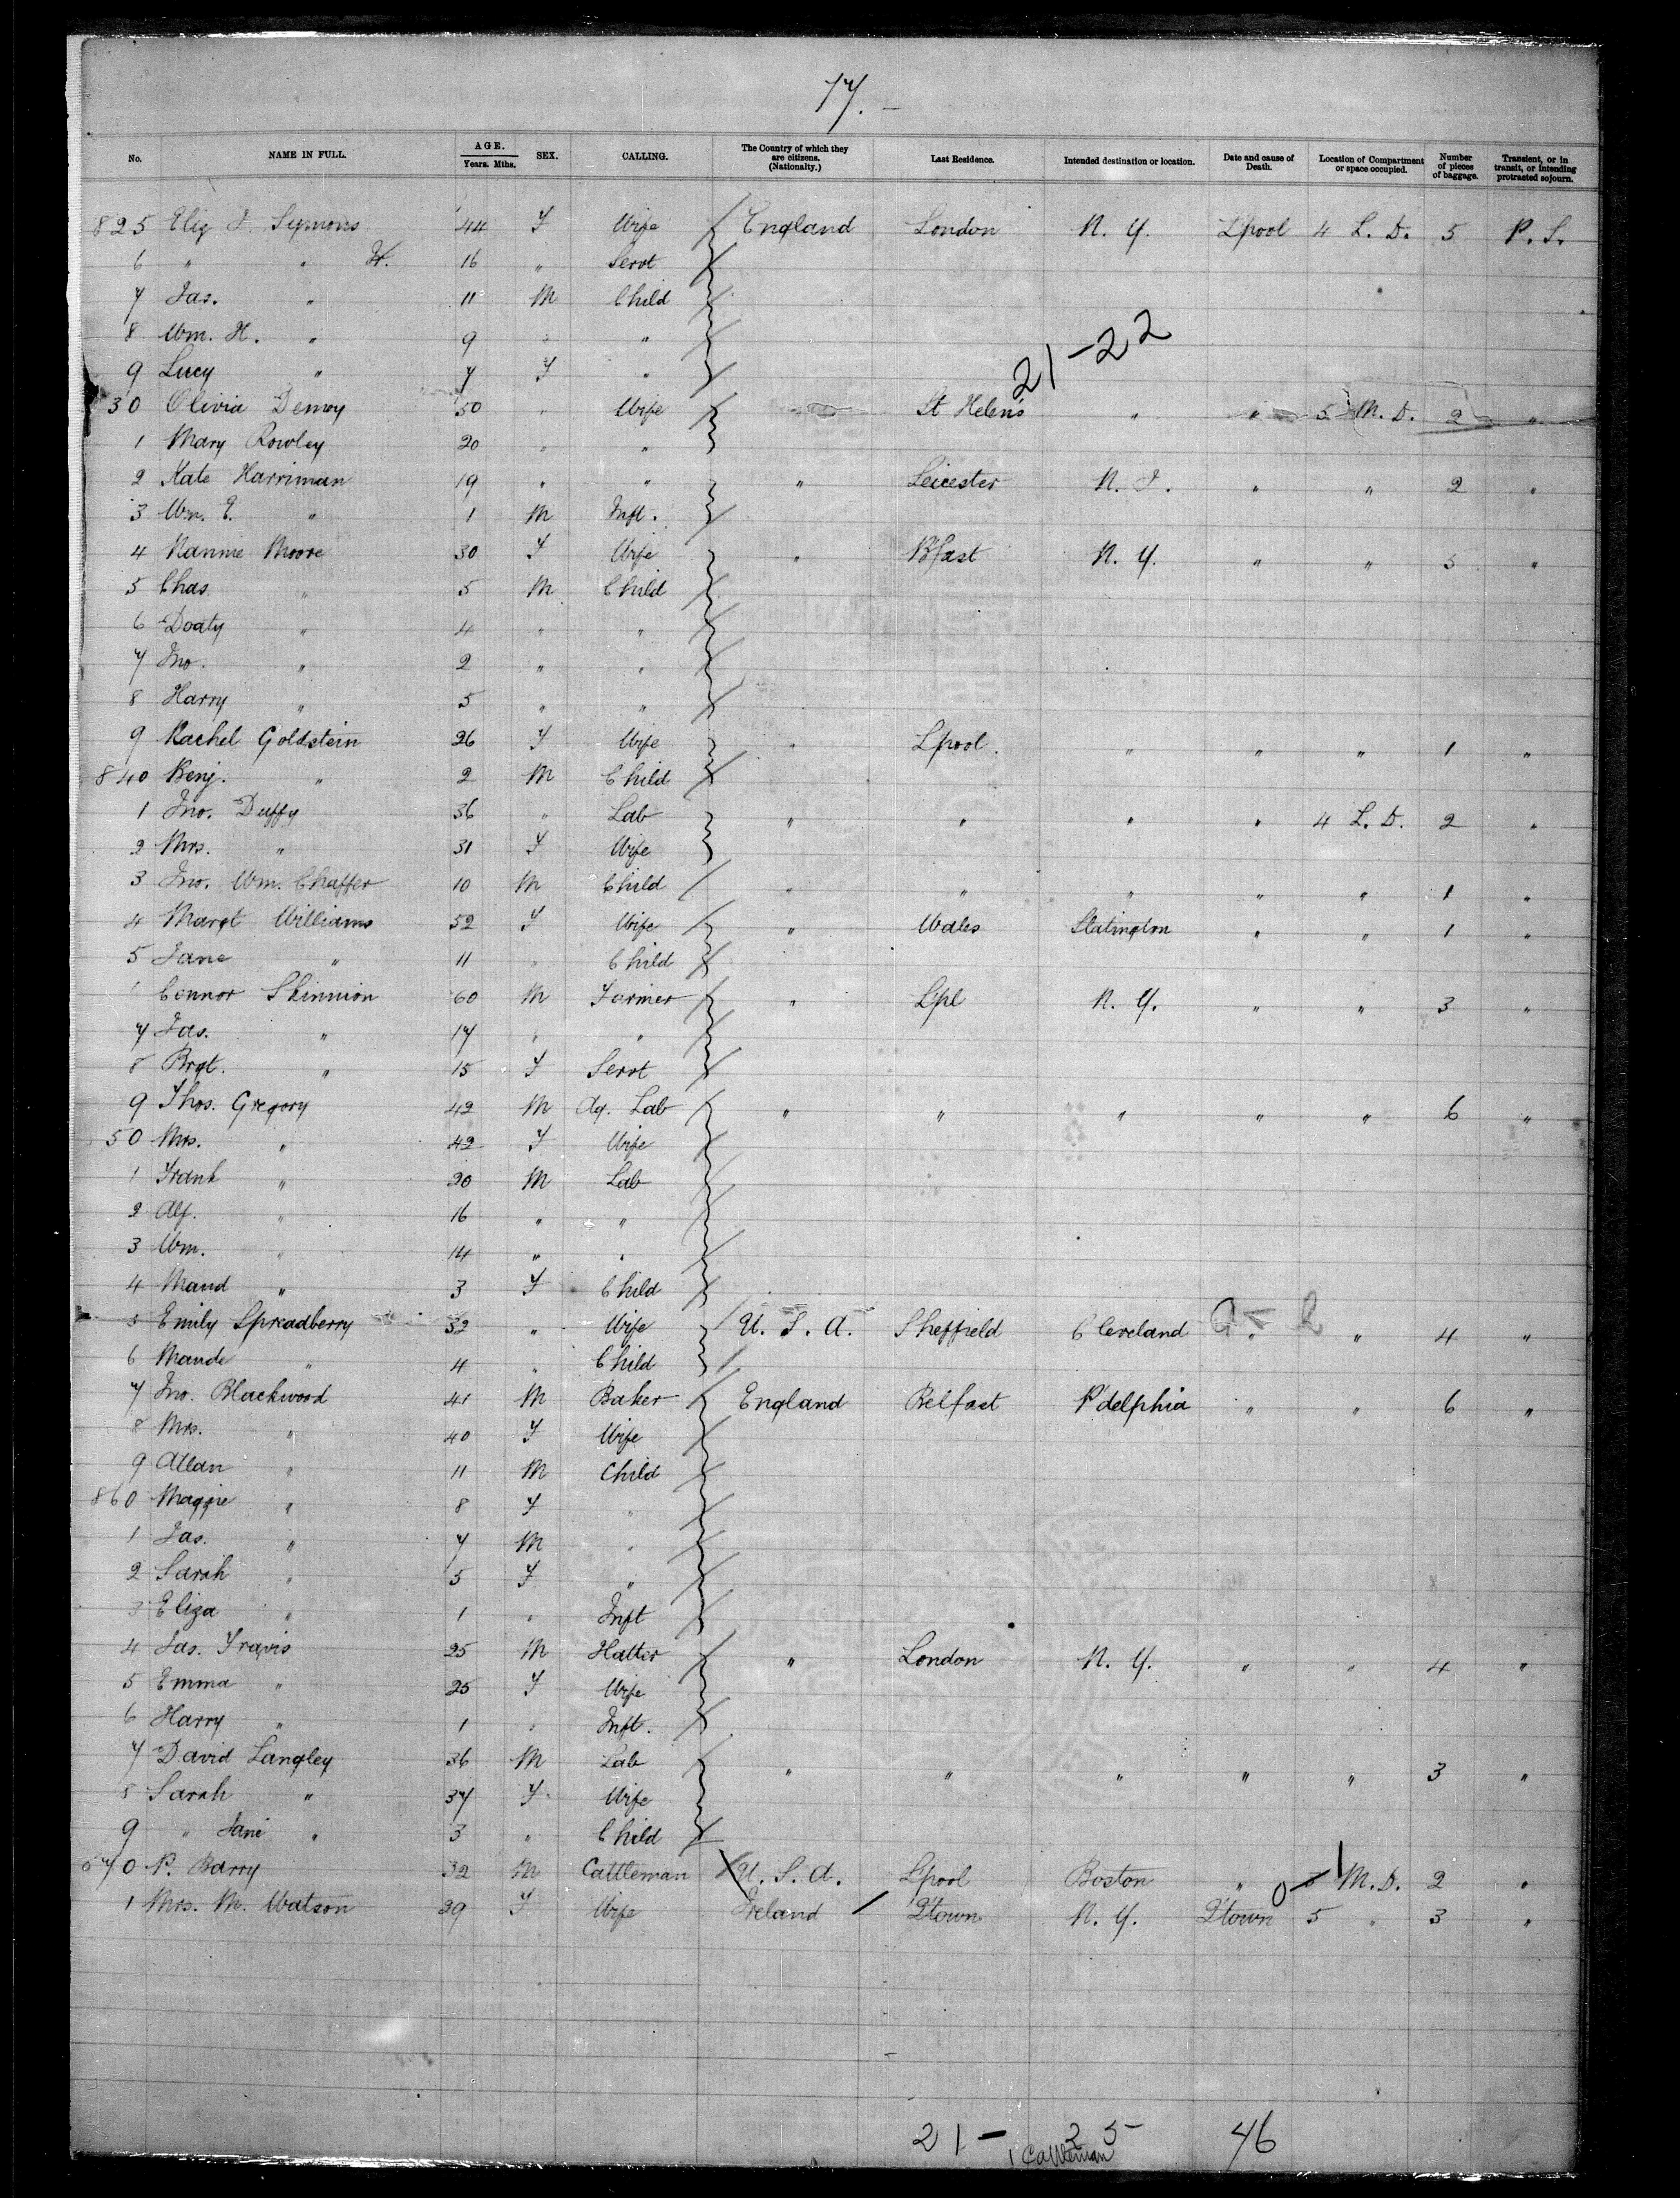 17. -
No. NAME IN FULL. AGE. Years. Mths. SEX. CALLING. The Country of which they are citizens. (Nationalty.) Last Residence. Intended destination or location. Date and cause of Death. Location of Compartment or space occupied. Number of pieces of baggage. Transient, or in transit, or intending protracted sojourn.
825 Eliz J. Symons 44 F Wife England London N. Y. L'pool 4 L. D. 5 P. S.
6 " " H. 16 " Servt
7 Jas. " 11 M Child
8 Wm. H. " 9 " "
9 Lucy " 7 F "
21-22
30 Olivia Demoy 50 " Wife " St Helen's " " 5 M. D. 2 "
1 Mary Rowley 20 " "
2 Kate Harriman 19 " " " Leicester N. J. " " 2 "
3 Wm. E. " 1 M Inft.
4 Nannie Moore 30 F Wife " B'fast N. Y. " " 5 "
5 Chas. " 5 M Child
6 Doaty " 4 " "
7 Jno. " 2 " "
8 Harry " 5 " "
9 Rachel Goldstein 26 F Wife " L'pool. " " " 1 "
840 Benj. " 2 M Child
1 Jno. Duffy 36 " Lab " " " " 4 L. D. 2 "
2 Mrs. " 31 F Wife
3 Jno. Wm. Chaffer 10 M Child " " " " " 1 "
4 Margt Williams 52 F Wife " Wales Slatington " " 1 "
5 Jane " 11 " Child
Connor Skinnion 60 M Farmer " L'pl N. Y. " " 3 "
7 Jas. " 17 " "
8 Brgt. " 15 F Servt
9 Thos. Gregory 42 M Ag. Lab " " " " " 6 "
50 Mrs. " 42 F Wife
1 Frank " 20 M Lab
2 Alf. " 16 " "
3 Wm. " 14 " "
4 Maud " 3 F Child
5 Emily Spreadberry 32 " Wife U. S. A. Sheffield Cleveland " " 4 "
6 Maude " 4 " Child
7 Jno. Blackwood 41 M Baker England Belfast P'delphia " " 6 "
8 Mrs. " 40 F Wife
9 Allan " 11 M Child
860 Maggie " 8 F "
1 Jas. " 7 M "
2 Sarah " 5 F "
3 Eliza " 1 " Inft
4 Jas. Travis 25 M Hatter " London N. Y. " " 4 "
5 Emma " 25 F Wife
6 Harry " 1 " Inft.
7 David Langley 36 M Lab " " " " " 3 "
8 Sarah " 37 F Wife
9 " Jane " 3 " Child
870 P. Barry 32 M Cattleman U. S. A. L'pool Boston " M. D. 2 "
1 Mrs. M. Watson 39 F Wife Ireland Q'town N. Y. Q'town 5 " 3 "
21 - 25 46
1 Cattleman